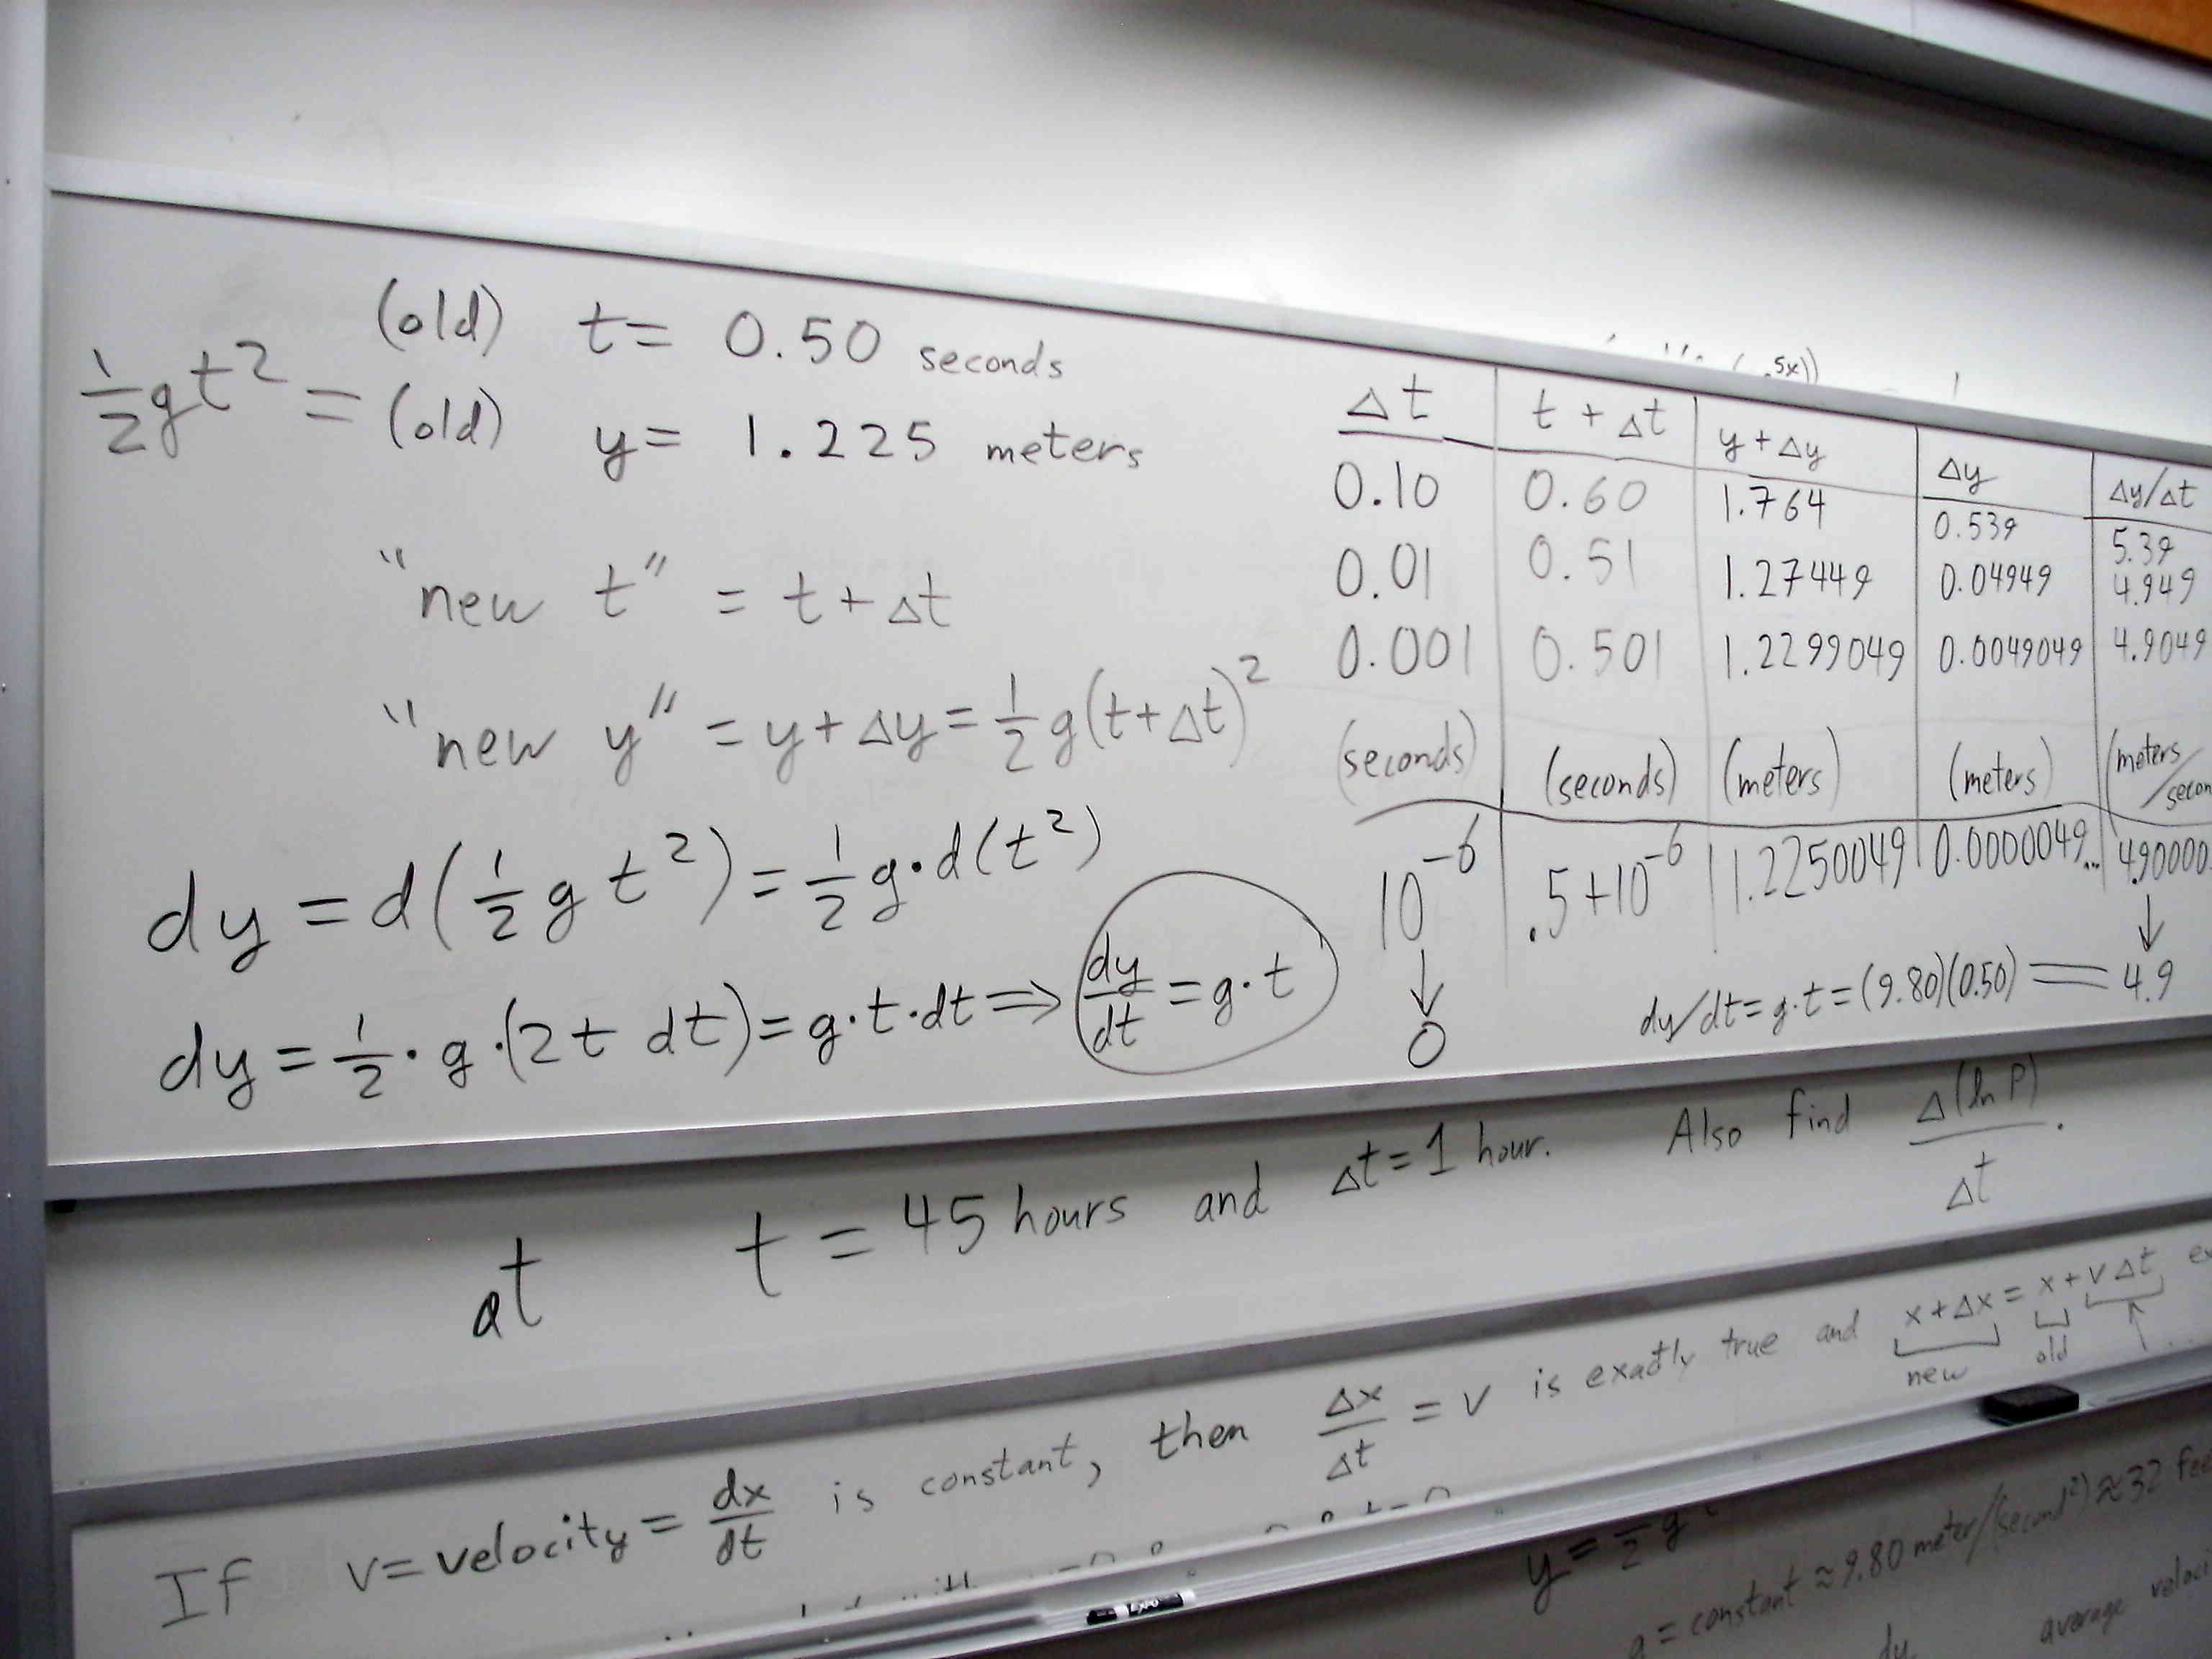 (old) t = 0.50 seconds
½gt² = (old) y = 1.225 meters
"new t" = t + Δt
"new y" = y + Δy = ½g(t+Δt)²
dy = d(½gt²) = ½g·d(t²)
dy = ½·g·(2t dt) = g·t·dt ⇒ dy/dt = g·t
5x))
Δt | t + Δt | y + Δy | Δy | Δy/Δt
0.10 | 0.60 | 1.764 | 0.539 | 5.39
0.01 | 0.51 | 1.27449 | 0.04949 | 4.949
0.001 | 0.501 | 1.2299049 | 0.0049049 | 4.9049
(seconds) | (seconds) | (meters) | (meters) | (meters/secon
10⁻⁶ | .5+10⁻⁶ | 1.2250049 | 0.0000049... | 4.90000
↓ ↓
0 dy/dt = g·t = (9.80)(0.50) = 4.9
at t = 45 hours and Δt = 1 hour. Also find Δ(ln P)/Δt.
If v = velocity = dx/dt is constant, then Δx/Δt = v is exactly true and x+Δx = x + vΔt ex
new old
EXPO
y = ½g
g = constant ≈ 9.80 meter/(second²) ≈ 32 fee
dy average veloci